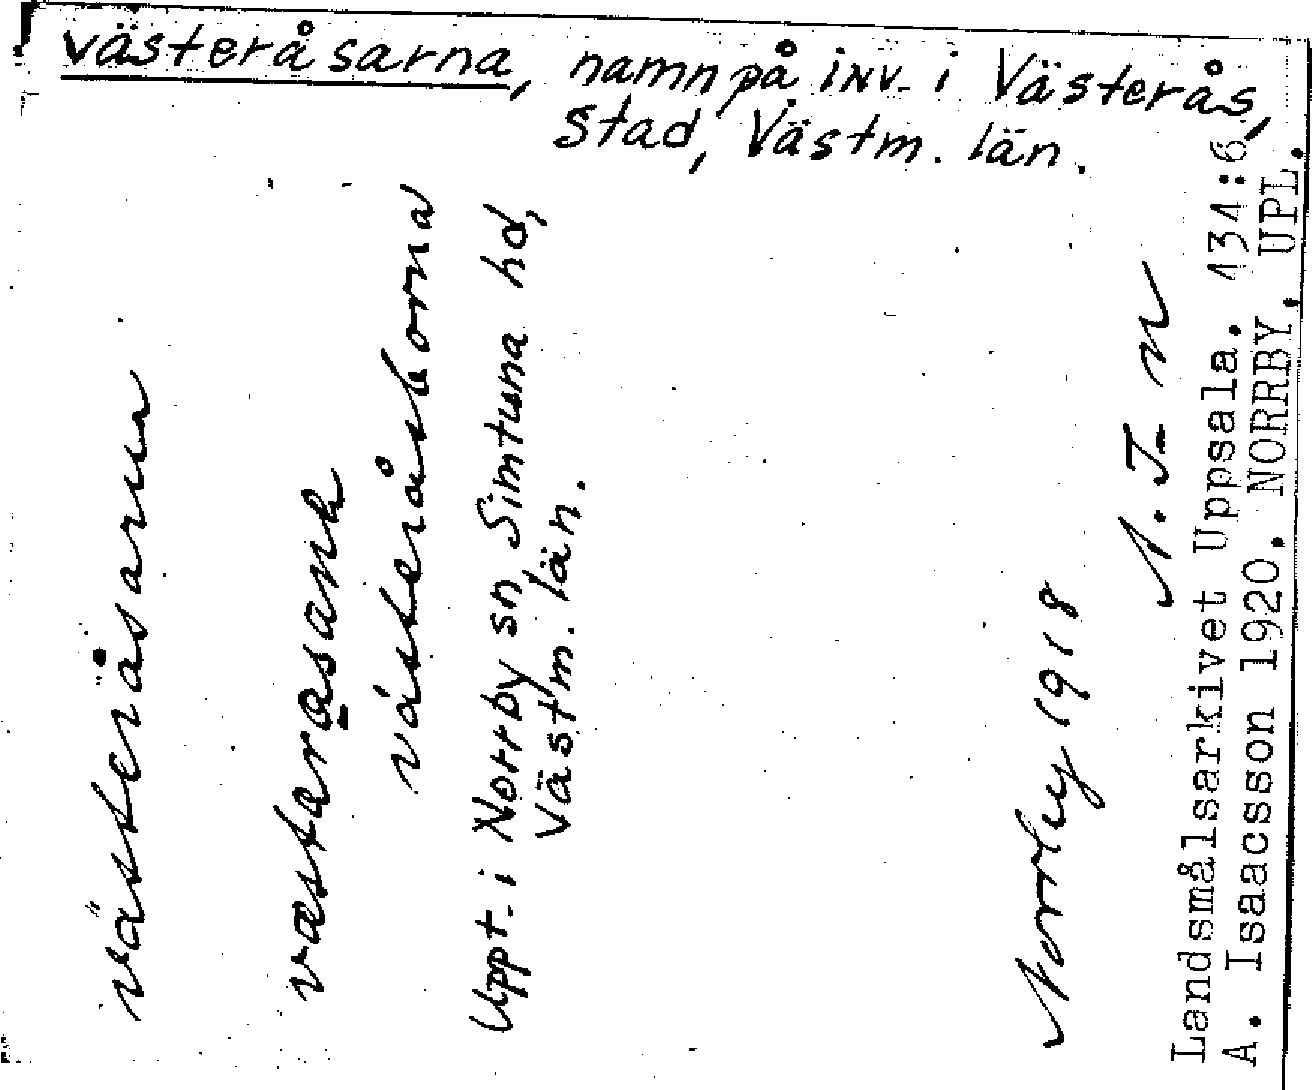 västeråsarna, namn på inv. i Västerås
stad, Västm. län.
västeråsarna
væstaråsaṇa
västeråsborna
Uppt. i Norrby sn Simtuna hd,
Västm. län.
Norrby 1918
Landsmålsarkivet Uppsala. 434:6
A. Isaacsson 1920. NORRBY, UPL.